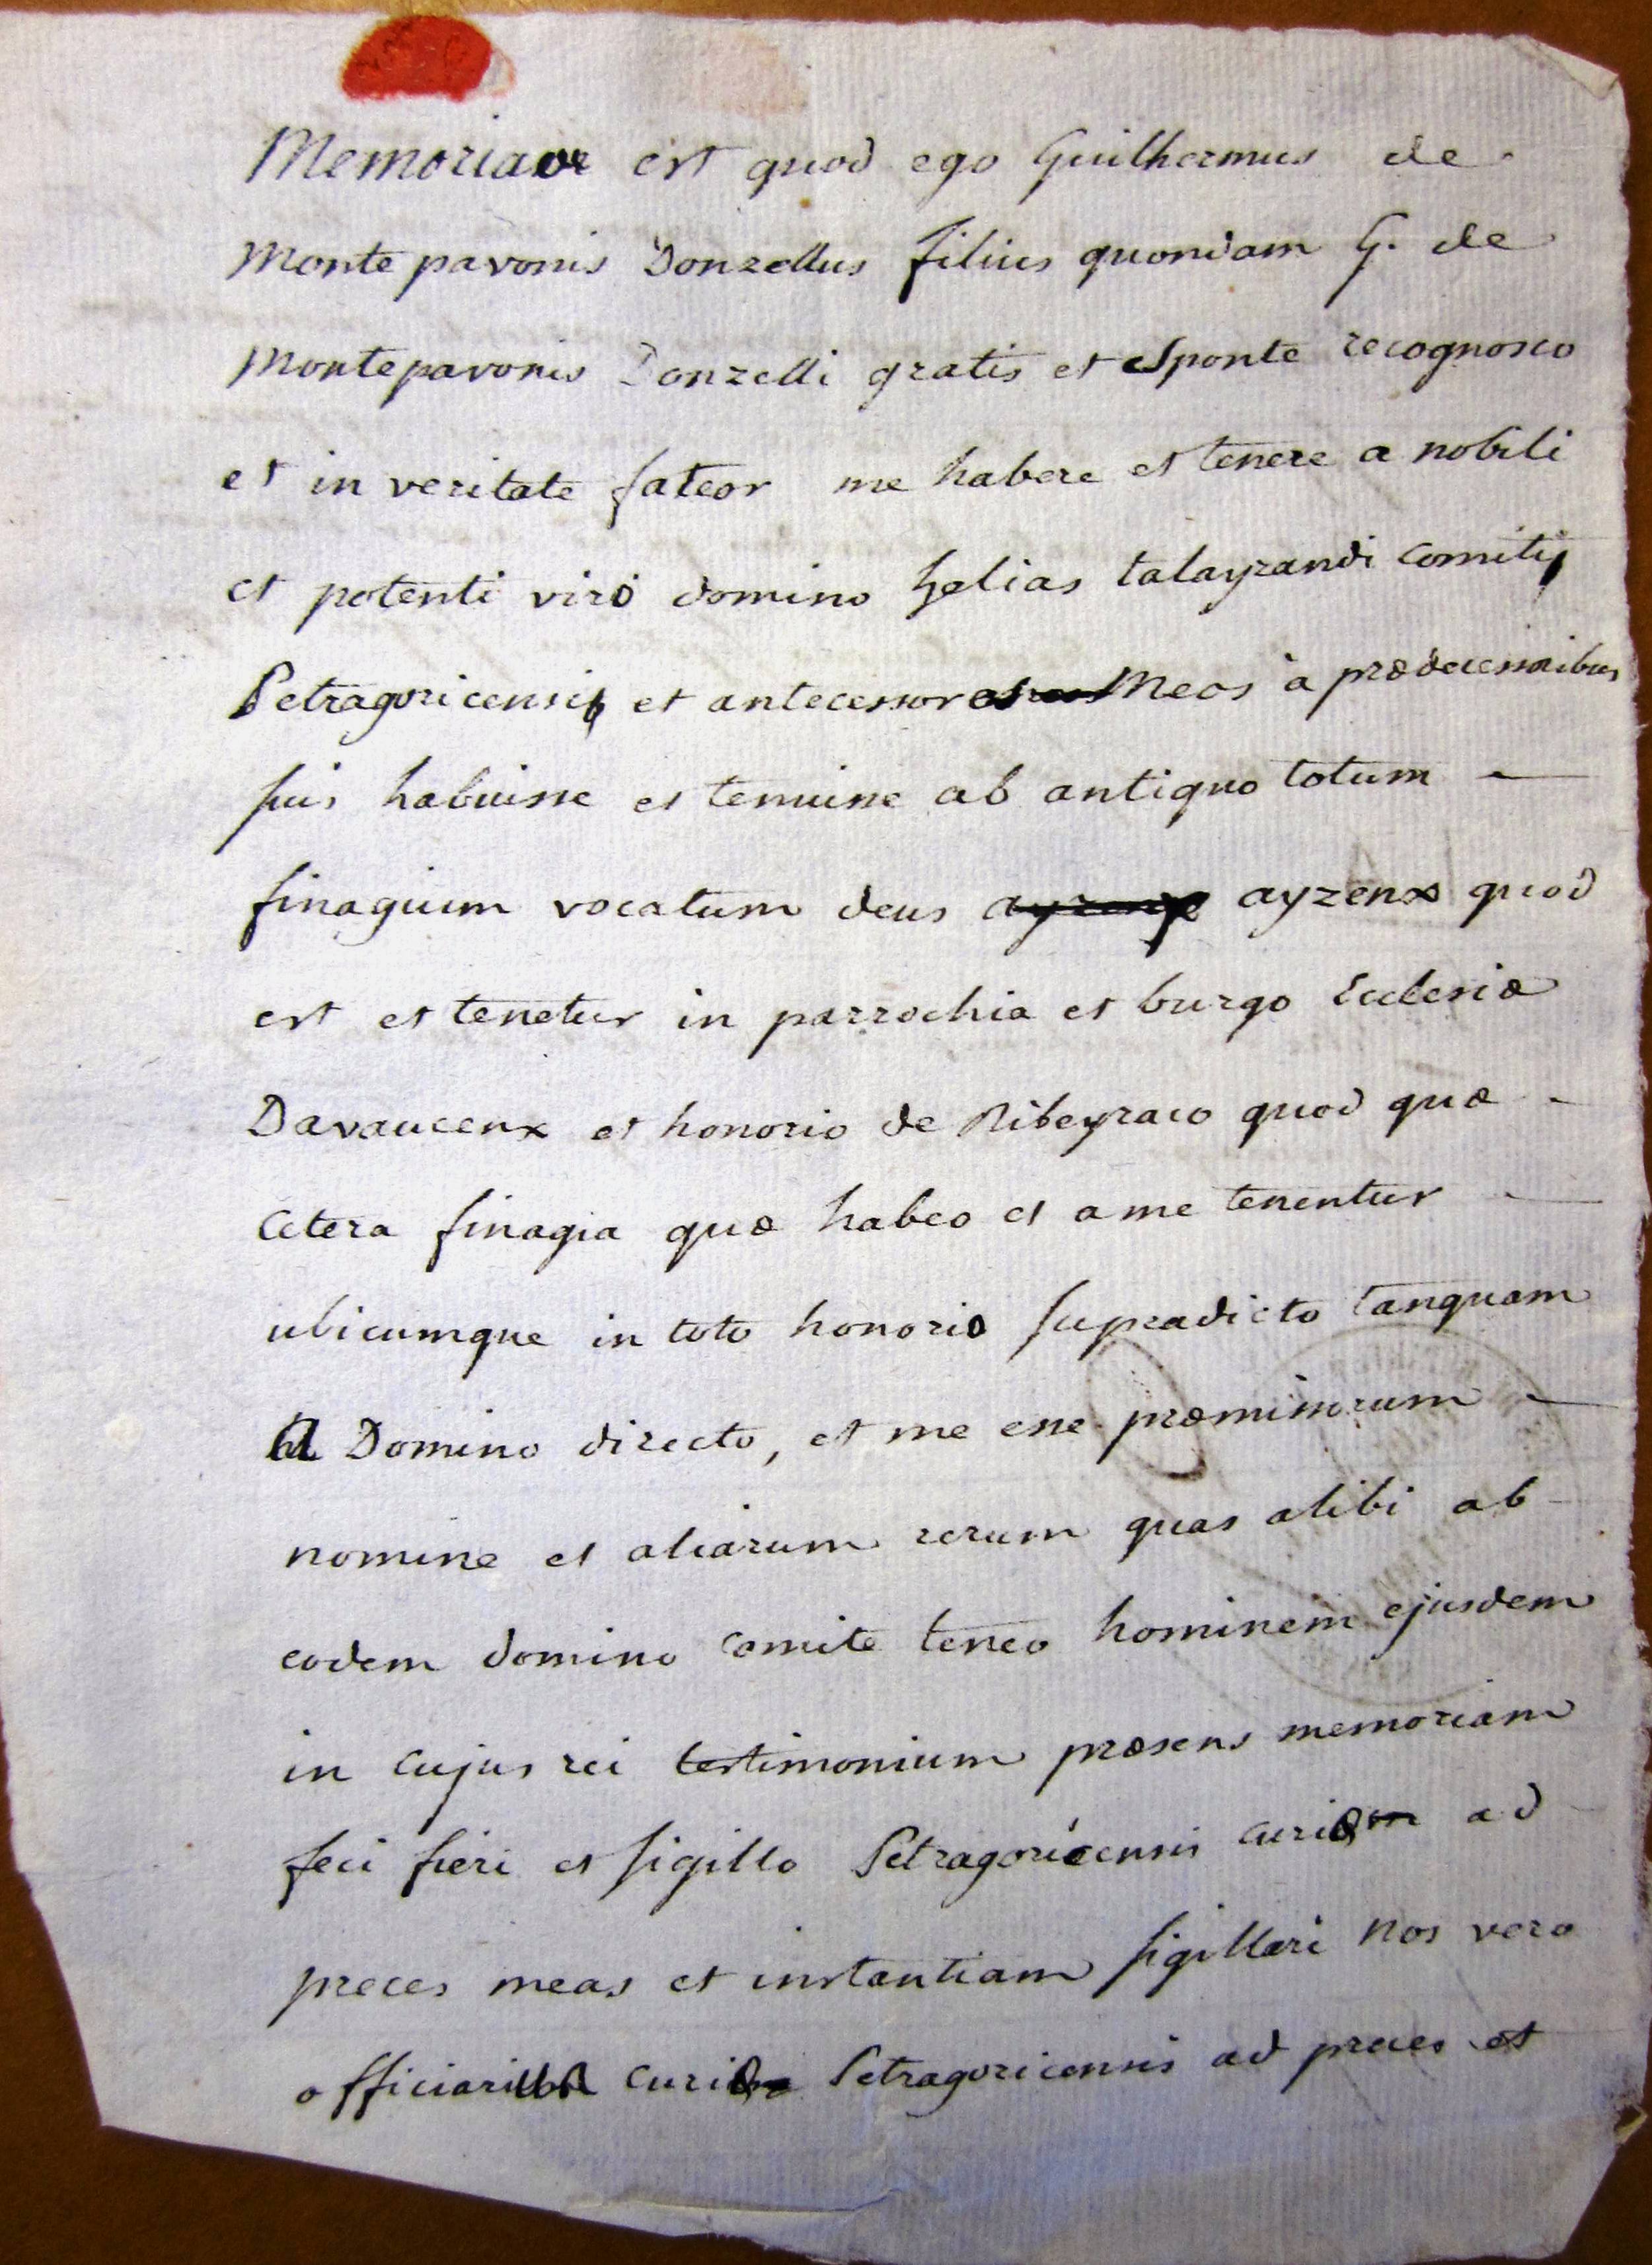 Memoriae est quod ego Guilhermus de
Monte pavonis Donzellus filius quondam G. de
Montepavonis Donzelli gratis et sponte recognosco
et in veritate fateor me habere et tenere a nobili
et potenti viro domino helias talayrandi comitis
Petragoricensis et antecessores meos à prædecessoribus
suis habuisse et tenuisse ab antiquo totum
finagium vocatum deus ayzenx ayzenx quod
est et tenetur in parrochia et burgo Ecclesiæ
Davaucenx et honorio de Ribeyraco quod quæ
Cetera finagia quæ habeo et a me tenentur
ubicumque in toto honorio supradicto tanquam
a Domino directo, et me esse præmissorum
nomine et aliarum rerum quas alibi ab
eodem domino comite teneo hominem ejusdem
in cujus rei testimonium præsens memoriam
feci fieri et sigillo Petragoricensis curiæ ad
preces meas et instantiam sigillari Nos vero
curiæ Petragoricensis ad preces et